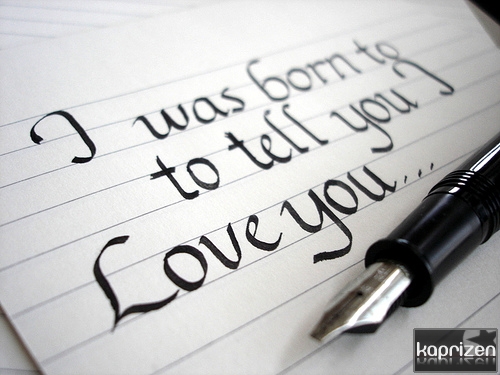 I was born to
to tell you I
Love you...
kaprizen